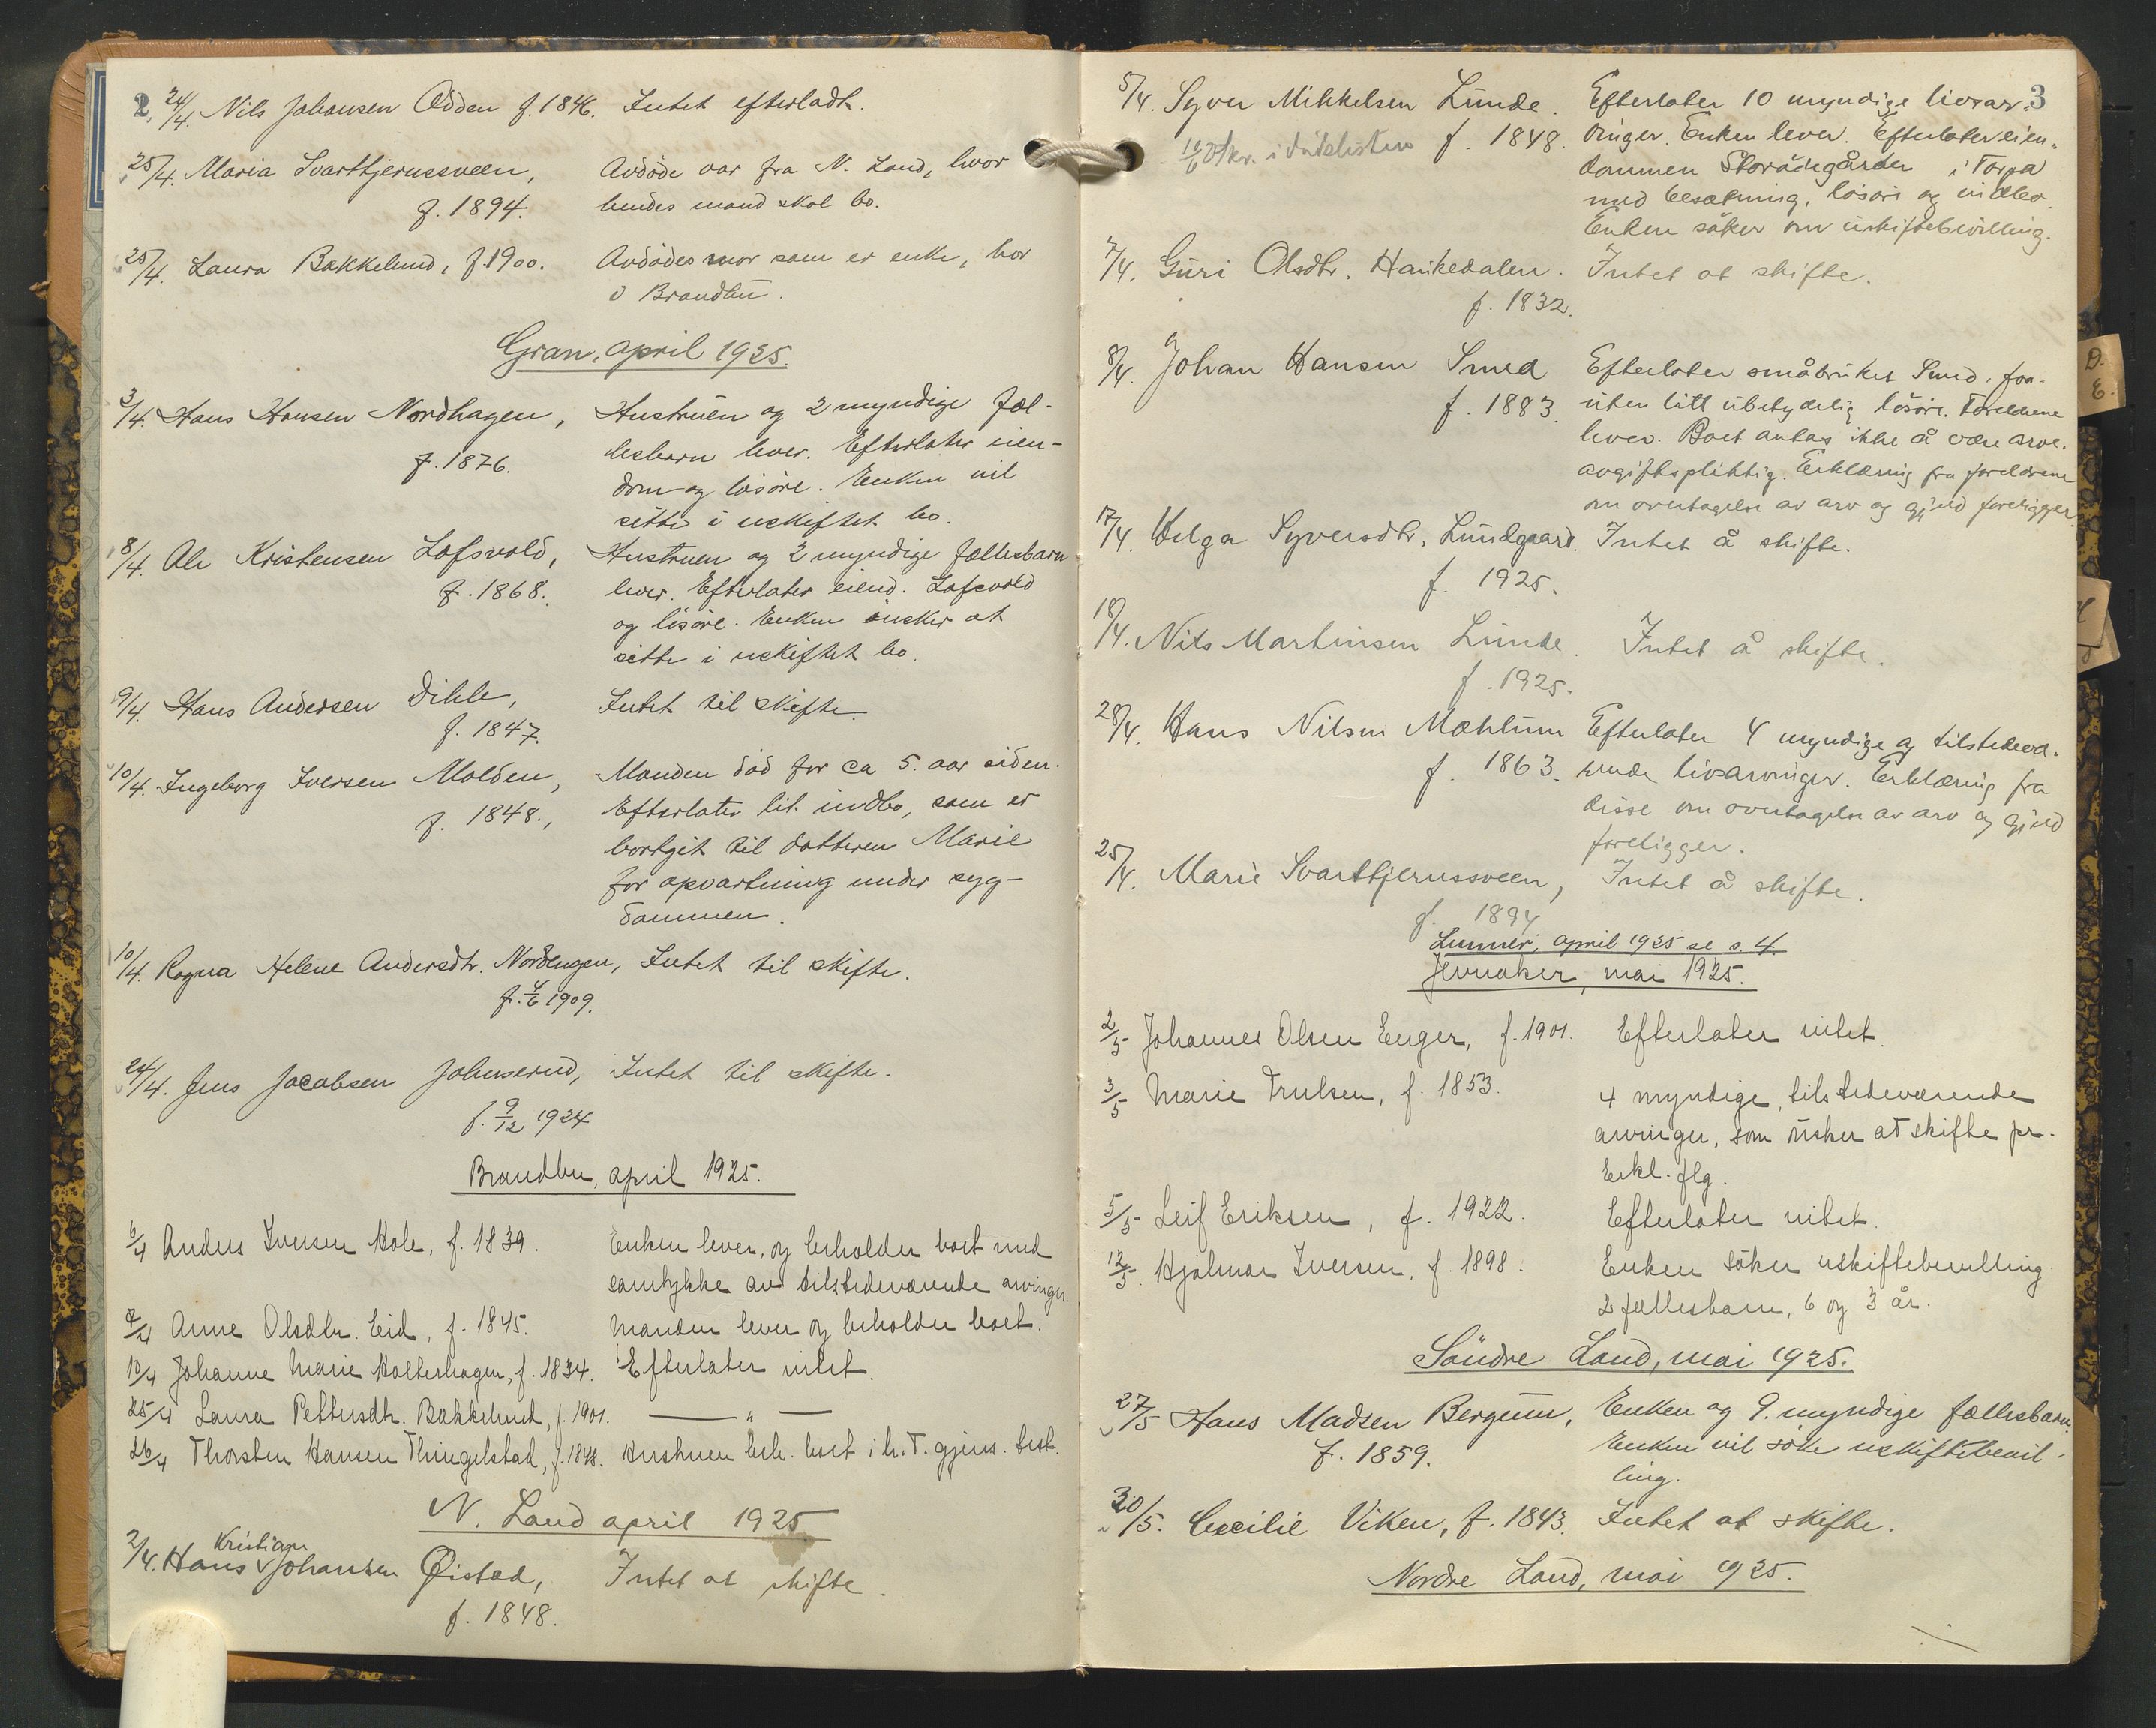 2.
24/4. Nils Johansen Odden f. 1846. Intet efterladt.
25/4. Maria Svarttjernssveen, Avdöde var fra N. Land, hvor
f. 1894. hendes mand skal bo.
25/4. Laura Bakkelund, f. 1900. Avdödes mor som er enke, bor
i Brandbu.
Gran, april 1925.
3/4. Hans Hansen Nordhagen, Hustruen og 2 myndige fæl-
f. 1876. lesbarn lever. Efterlater eien-
dom og lösöre. Enken vil
sitte i uskiftet bo.
8/4. Ale Kristensen Lofsvold, Hustruen og 3 myndige fællesbarn
f. 1868. lever. Efterlater eiend. Lofsvold
og lösöre. Enken önsker at
sitte i uskiftet bo.
9/4. Hans Andersen Dihle, Intet til skifte.
f. 1847.
10/4. Ingeborg Iversen Molden, Manden död for ca 5. aar siden.
f. 1848., Efterlater lit indbo, som er
bortgit til datteren Marie
for opvartning under syg-
dommen.
10/4. Ragna Helene Andersdtr. Nordengen, Intet til skifte.
f. 4/6 1909.
24/4. Jens Jacobsen Johnserud, Intet til skifte.
f. 9/12 1924
Brandbu, april 1925.
6/4 Anders Iversen Hole, f. 1839. Enken lever, og beholder boet med
samtykke av tilstedeværende arvinger.
7/4 Anne Olsdtr. Eid, f. 1845. Manden lever og beholder boet.
10/4 Johanne Marie Holterhagen, f. 1834. Efterlater intet.
25/4 Laura Pettersdtr. Bakkelund, f. 1901. — " —
26/4 Thorsten Hansen Thingelstad, f. 1848. Hustruen beh. boet i h. t. gjens. test.
N. Land april 1925
Kristian
2/4. Hans Johansen Øistad, Intet at skifte.
f. 1848.
3
5/4. Syver Mikkelsen Lunde. Efterlater 10 myndige livsar-
f. 1848. vinger. Enken lever. Efterlater eien-
dommen Storödegården i Torpa
med besætning, lösöre og indbo.
Enken söker om uskiftebevilling.
7/4. Guri Olsdtr. Haukedalen. Intet at skifte.
f. 1832.
8/4. Johan Hansen Smed Efterlater småbruket Smed, for-
f. 1883. uten litt ubetydelig lösöre. Foreldrene
lever. Boet antas ikke å være arve-
avgiftspliktig. Erklæring fra foreldrene
om overtagelse av arv og gjeld foreligger.
17/4. Helga Syversdtr. Lundgaard. Intet å skifte.
f. 1925.
18/4. Nils Martinsen Lunde. Intet å skifte.
f. 1925.
28/4. Hans Nilsen Mæhlum Efterlater 4 myndige og tilstedevæ-
f. 1863. rende livsarvinger. Erklæring fra
disse om overtagelse av arv og gjeld
foreligger.
25/4. Marie Svarttjernssveen, Intet å skifte.
f. 1894
Lunner, april 1925 se s. 4.
Jevnaker, mai 1925.
2/5 Johannes Olsen Enger, f. 1901. Efterlater intet.
3/5 Marie Trulsen, f. 1853. 4 myndige, tilstedeværende
arvinger, som önsker at skifte pr.
Erkl. flg.
5/5 Leif Eriksen, f. 1922. Efterlater intet.
12/5. Hjalmar Iversen, f. 1898. Enken söker uskiftebevilling.
2 fællesbarn, 6 og 3 år.
Söndre Land, mai 1925.
27/5 Hans Madsen Bergum, Enken og 9. myndige fællesbarn.
f. 1859. Enken vil söke uskiftebevil-
ling.
30/5. Cecilie Viken, f. 1843. Intet at skifte.
Nordre Land, mai 1925.
D.
E.